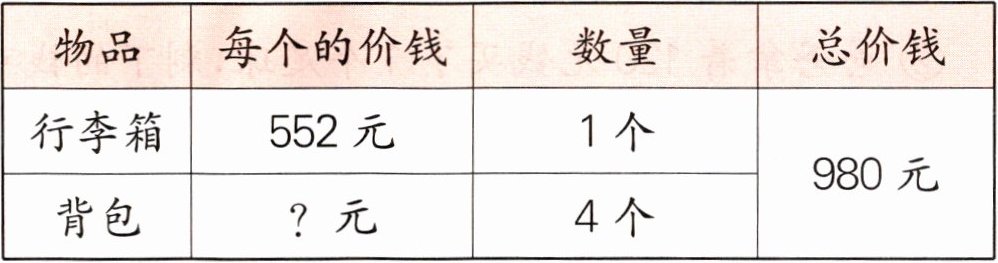 物品 每个的价钱 数量 总价钱
行李箱 552 元 1 个
980 元
背包 ? 元 4 个